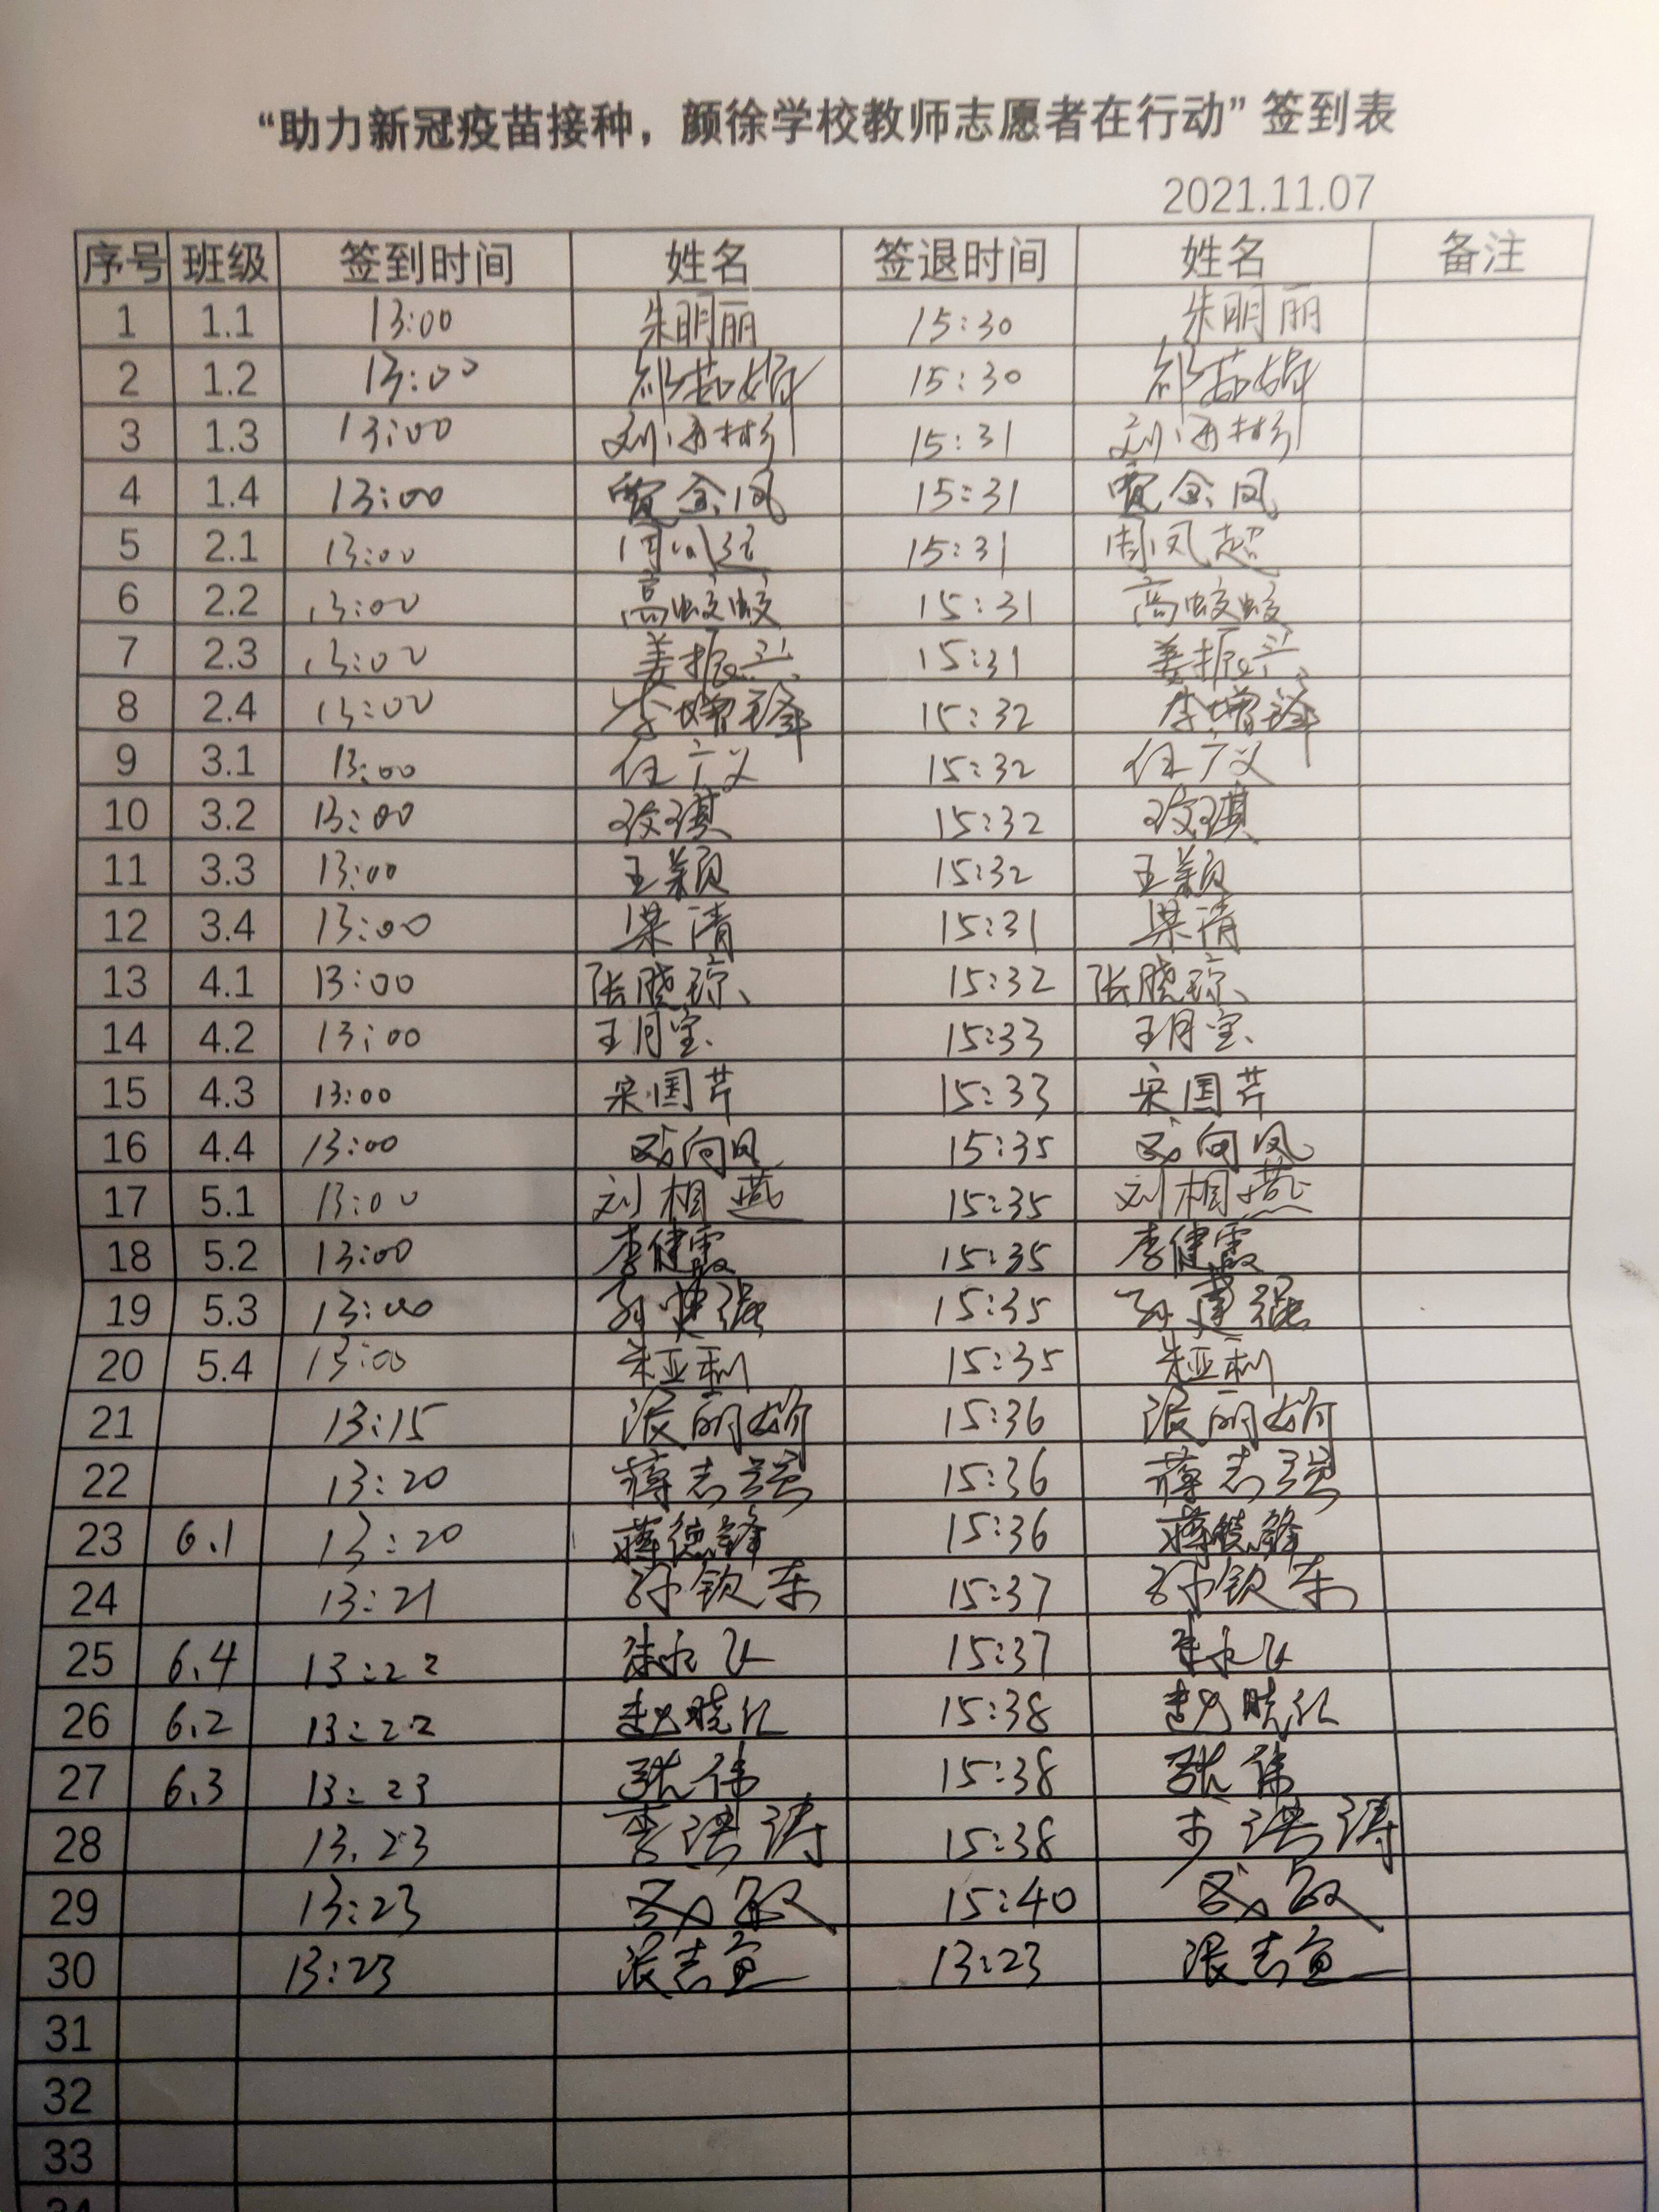 “助力新冠疫苗接种，颜徐学校教师志愿者在行动”签到表
2021.11.07
序号 班级 签到时间 姓名 签退时间 姓名 备注
1 1.1 13:00 朱明丽 15:30 朱明丽
2 1.2 13:00 15:30
3 1.3 13:00 15:31
4 1.4 13:00 贾金凤 15:31 贾金凤
5 2.1 13:00 15:31 周凤超
6 2.2 13:00 高蛟蛟 15:31 高蛟蛟
7 2.3 13:00 姜振兴 15:31 姜振兴
8 2.4 13:00 李增锋 15:32 李增锋
9 3.1 13:00 任广义 15:32 任广义
10 3.2 13:00 15:32
11 3.3 13:00 王颖 15:32 王颖
12 3.4 13:00 梁清 15:31 梁清
13 4.1 13:00 张晓琼 15:32 张晓琼
14 4.2 13:00 王月宝 15:33 王月宝
15 4.3 13:00 宋国芹 15:33 宋国芹
16 4.4 13:00 15:35
17 5.1 13:00 刘相燕 15:35 刘相燕
18 5.2 13:00 李健霞 15:35 李健霞
19 5.3 13:00 孙建强 15:35 孙建强
20 5.4 13:00 朱亚利 15:35 朱亚利
21 13:15 张丽娇 15:36 张丽娇
22 13:20 蒋志强 15:36 蒋志强
23 6.1 13:20 蒋德锋 15:36 蒋德锋
24 13:21 孙钦东 15:37 孙钦东
25 6.4 13:22 15:37
26 6.2 13:22 赵晓红 15:38 赵晓红
27 6.3 13:23 张伟 15:38 张伟
28 13.23 李洪涛 15:38 李洪涛
29 13:23 15:40
30 13:23 张志宣 13:23 张志宣
31
32
33